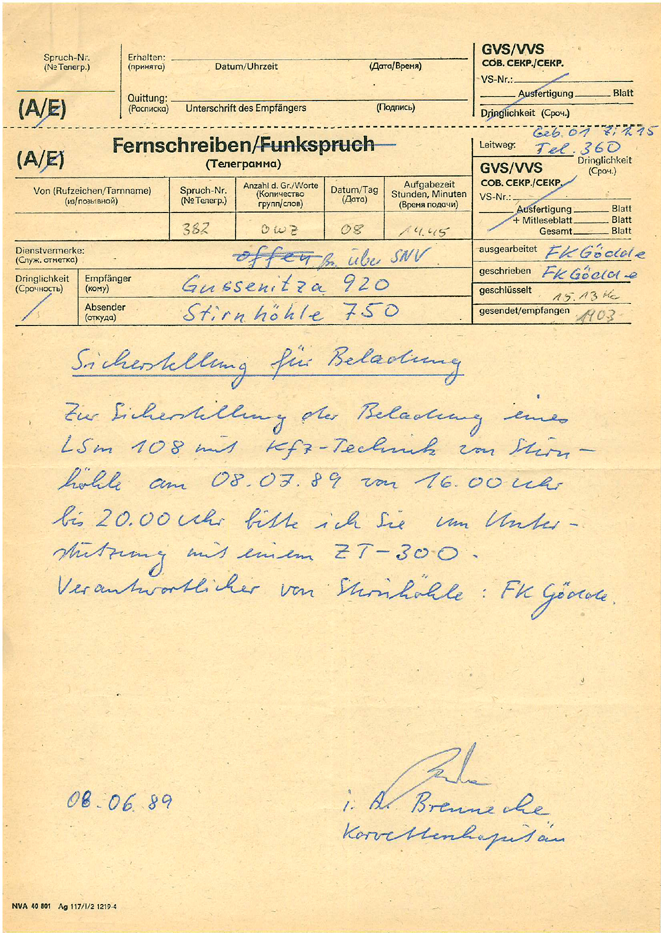 Spruch-Nr.
(№ Телегр.)
(A/E)
Erhalten:
(принято)
Datum/Uhrzeit
(Дата/Время)
Quittung:
(Росписка)
Unterschrift des Empfängers
(Подпись)
GVS/VVS
СОВ. СЕКР./СЕКР.
VS-Nr.:
Ausfertigung Blatt
Dringlichkeit (Сроч.)
(A/E)
Fernschreiben/Funkspruch
(Телеграмма)
Geb. 01 Zi. 1.15
Leitweg: Tel. 360
Dringlichkeit
(Сроч.)
GVS/VVS
СОВ. СЕКР./СЕКР.
VS-Nr.:
Ausfertigung Blatt
+ Mitleseblatt Blatt
Gesamt Blatt
Von (Rufzeichen/Tarnname)
(из/позывной)
Spruch-Nr.
(№ Телегр.)
382
Anzahl d. Gr./Worte
(Количество
групп/слов)
OWZ
Datum/Tag
(Дата)
08
Aufgabezeit
Stunden, Minuten
(Время подачи)
14.45
Dienstvermerke:
(Служ. отметка)
offen über SNV
Dringlichkeit
(Срочность)
Empfänger
(кому)
Gussenitza 920
Absender
(откуда)
Stirnhöhle 750
ausgearbeitet FK Gödde
geschrieben FK Gödde
geschlüsselt 15.13
gesendet/empfangen 1903
Sicherstellung für Beladung
Zur Sicherstellung der Beladung eines
LSm 108 mit Kfz-Technik von Stirn-
höhle am 08.07.89 von 16.00 Uhr
bis 20.00 Uhr bitte ich Sie um Unter-
stützung mit einem ZT-300.
Verantwortlicher von Stirnhöhle: FK Gödde.
08.06.89
i. A. Brennecke
Korvettenkapitän
NVA 40 801 Ag 117/I/2 1219-4